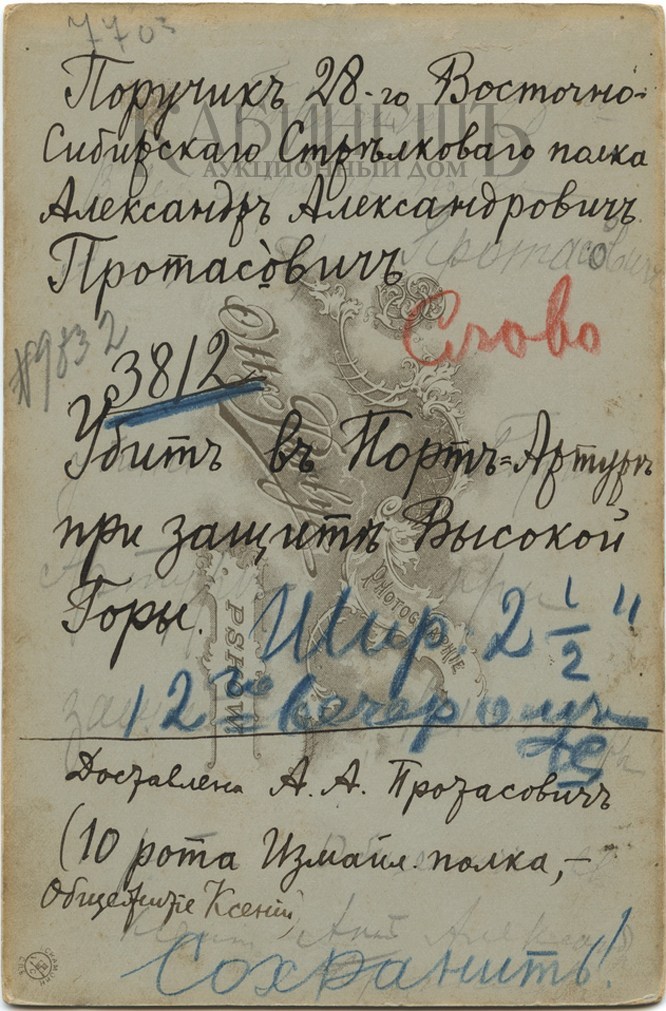 7703
Поручикъ 28-го Восточно-
Сибирскаго Стрѣлковаго полка
КАБИНЕТЪ
АУКЦИОННЫЙ ДОМ
Александръ Александровичъ
Протасовичъ
Протасовичъ
Слово
#9832
3812
Убитъ въ Портъ=Артурѣ
при защитѣ Высокой
Горы.
PHOTOGRAPHIE
PSKOW
Шир: 2 1/2"
12го вечеромъ
Доставлена А. А. Протасовичъ
(10 рота Измайл. полка,-
Общежитіе Ксеніи,
Сохранить!